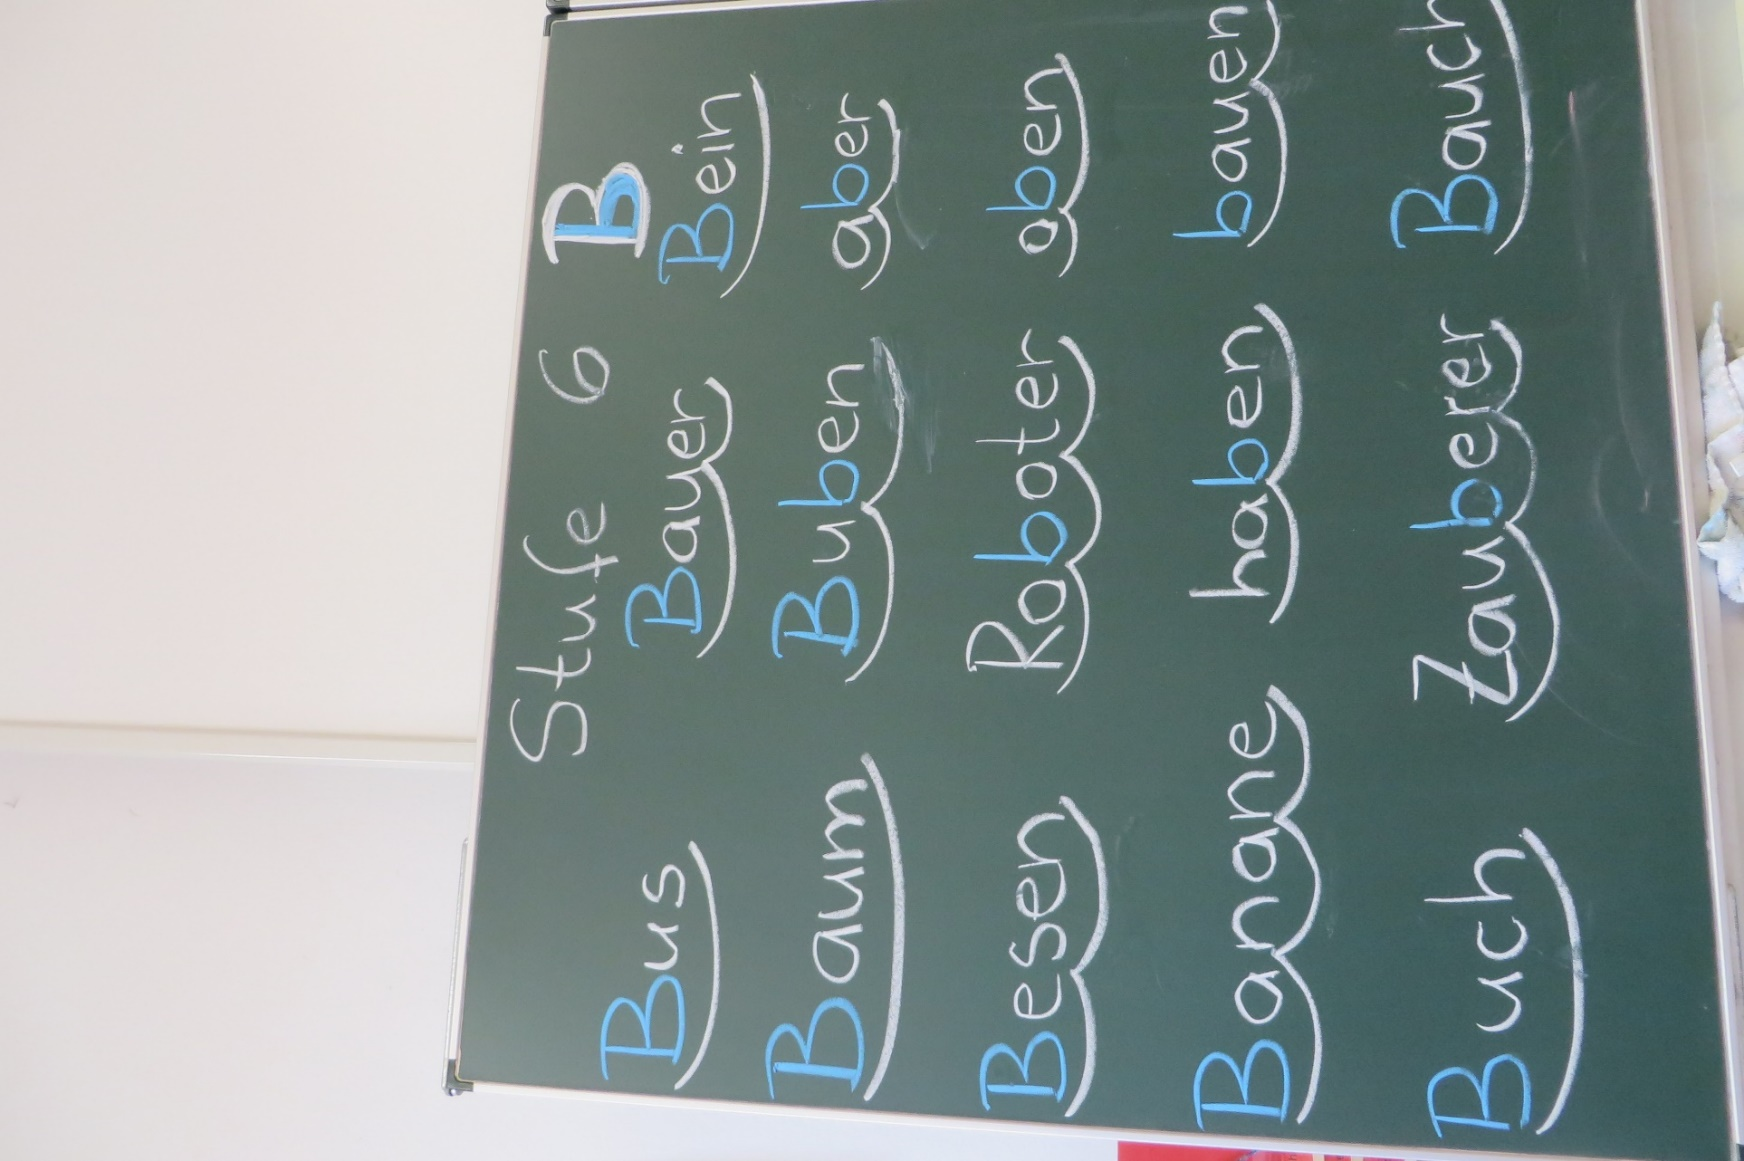 Stufe 6 B
Bus Bauer Bein
Baum Buben aber
Besen Roboter oben
Banane haben bauen
Buch Zauberer Bauch